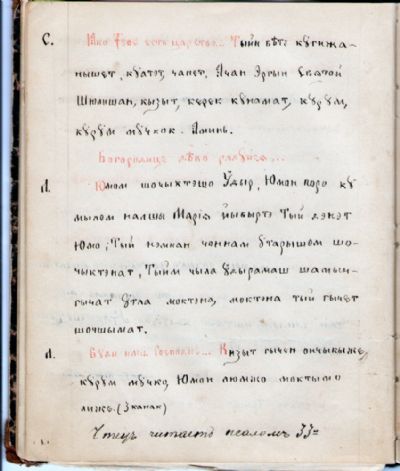 С. Ꙗко Твое есть царство... Тыйн вѣт кугижа-
нышет, куатэт, чапет, Ачан Эргын Святой
Шӱлышан, кызыт, керек кунамат, курум,
курум мучкок. Аминь.
Богородице дѣво радуйся...
Л. Юмом шочыктэшо Ӱдыр, Юмон поро ку
мылом налшы Марія йывыртэ Тый дэкэт
Юмо; Тый нэмнан чоннам утарышом шо-
чыктэнат, Тыйм чыла ӱдырамаш шамы-
гычат утла моктэна, моктэна тый гычет
шочшымат.
Л. Буди имя Господне... Кызыт гычен ончыкыжо,
курум мучко, Юмон лӱмжо моктымо
лиже. (3 канак)
Чтец читаетъ псаломъ 33й